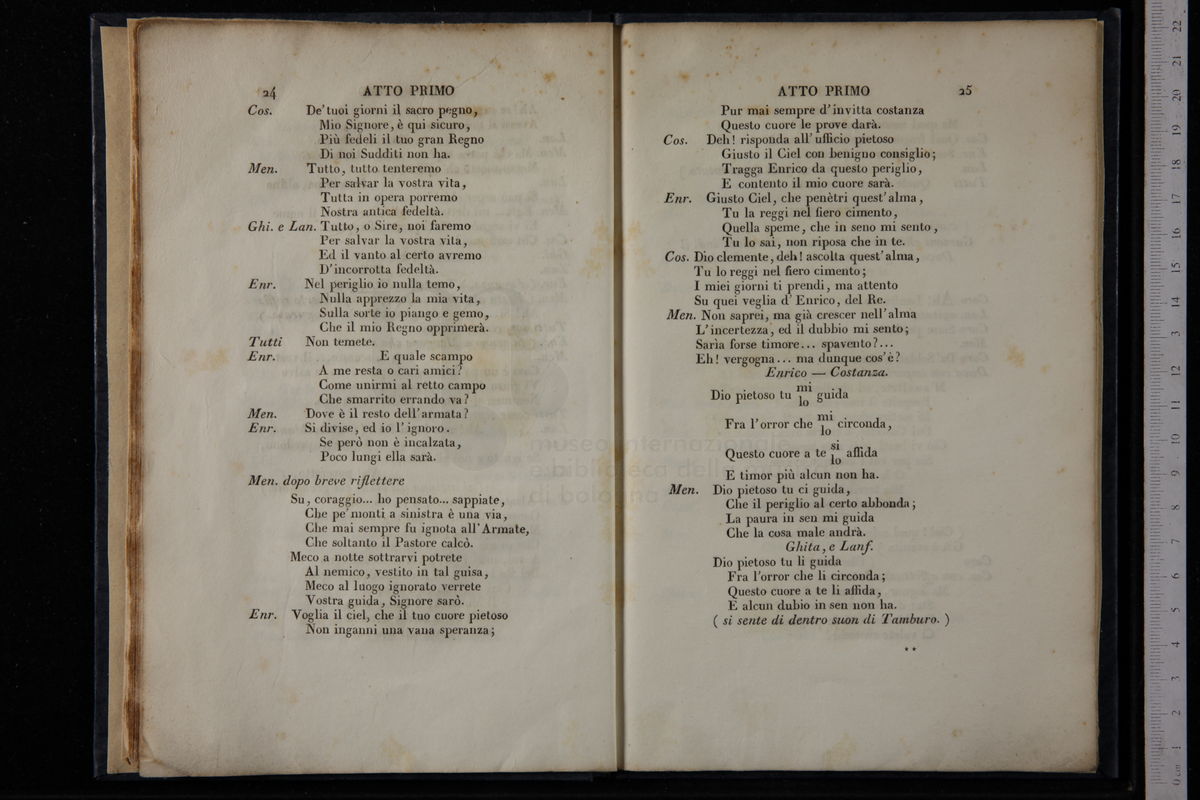 24 ATTO PRIMO
Cos. De' tuoi giorni il sacro pegno,
Mio Signore, è qui sicuro,
Più fedeli il tuo gran Regno
Di noi Sudditi non ha.
Men. Tutto, tutto tenteremo
Per salvar la vostra vita,
Tutta in opera porremo
Nostra antica fedeltà.
Ghi. e Lan. Tutto, o Sire, noi faremo
Per salvar la vostra vita,
Ed il vanto al certo avremo
D'incorrotta fedeltà.
Enr. Nel periglio io nulla temo,
Nulla apprezzo la mia vita,
Sulla sorte io piango e gemo,
Che il mio Regno opprimerà.
Tutti Non temete.
Enr. E quale scampo
A me resta o cari amici?
Come unirmi al retto campo
Che smarrito errando va?
Men. Dove è il resto dell'armata?
Enr. Si divise, ed io l'ignoro.
Se però non è incalzata,
Poco lungi ella sarà.
Men. dopo breve riflettere
Su, coraggio... ho pensato... sappiate,
Che pe' monti a sinistra è una via,
Che mai sempre fu ignota all'Armate,
Che soltanto il Pastore calcò.
Meco a notte sottrarvi potrete
Al nemico, vestito in tal guisa,
Meco al luogo ignorato verrete
Vostra guida, Signore sarò.
Enr. Voglia il ciel, che il tuo cuore pietoso
Non inganni una vana speranza;
ATTO PRIMO 25
Pur mai sempre d'invitta costanza
Questo cuore le prove darà.
Cos. Deh! risponda all'ufficio pietoso
Giusto il Ciel con benigno consiglio;
Tragga Enrico da questo periglio,
E contento il mio cuore sarà.
Enr. Giusto Ciel, che penètri quest'alma,
Tu la reggi nel fiero cimento,
Quella speme, che in seno mi sento,
Tu lo sai, non riposa che in te.
Cos. Dio clemente, deh! ascolta quest'alma,
Tu lo reggi nel fiero cimento;
I miei giorni ti prendi, ma attento
Su quei veglia d'Enrico, del Re.
Men. Non saprei, ma già crescer nell'alma
L'incertezza, ed il dubbio mi sento;
Sarìa forse timore... spavento?...
Eh! vergogna... ma dunque cos'è?
Enrico — Costanza.
Dio pietoso tu mi lo guida
Fra l'orror che mi lo circonda,
Questo cuore a te si lo affida
E timor più alcun non ha.
Men. Dio pietoso tu ci guida,
Che il periglio al certo abbonda;
La paura in sen mi guida
Che la cosa male andrà.
Ghita, e Lanf.
Dio pietoso tu li guida
Fra l'orror che li circonda;
Questo cuore a te li affida,
E alcun dubio in sen non ha.
( si sente di dentro suon di Tamburo. )
**
museo internazionale
e biblioteca della
di bologna